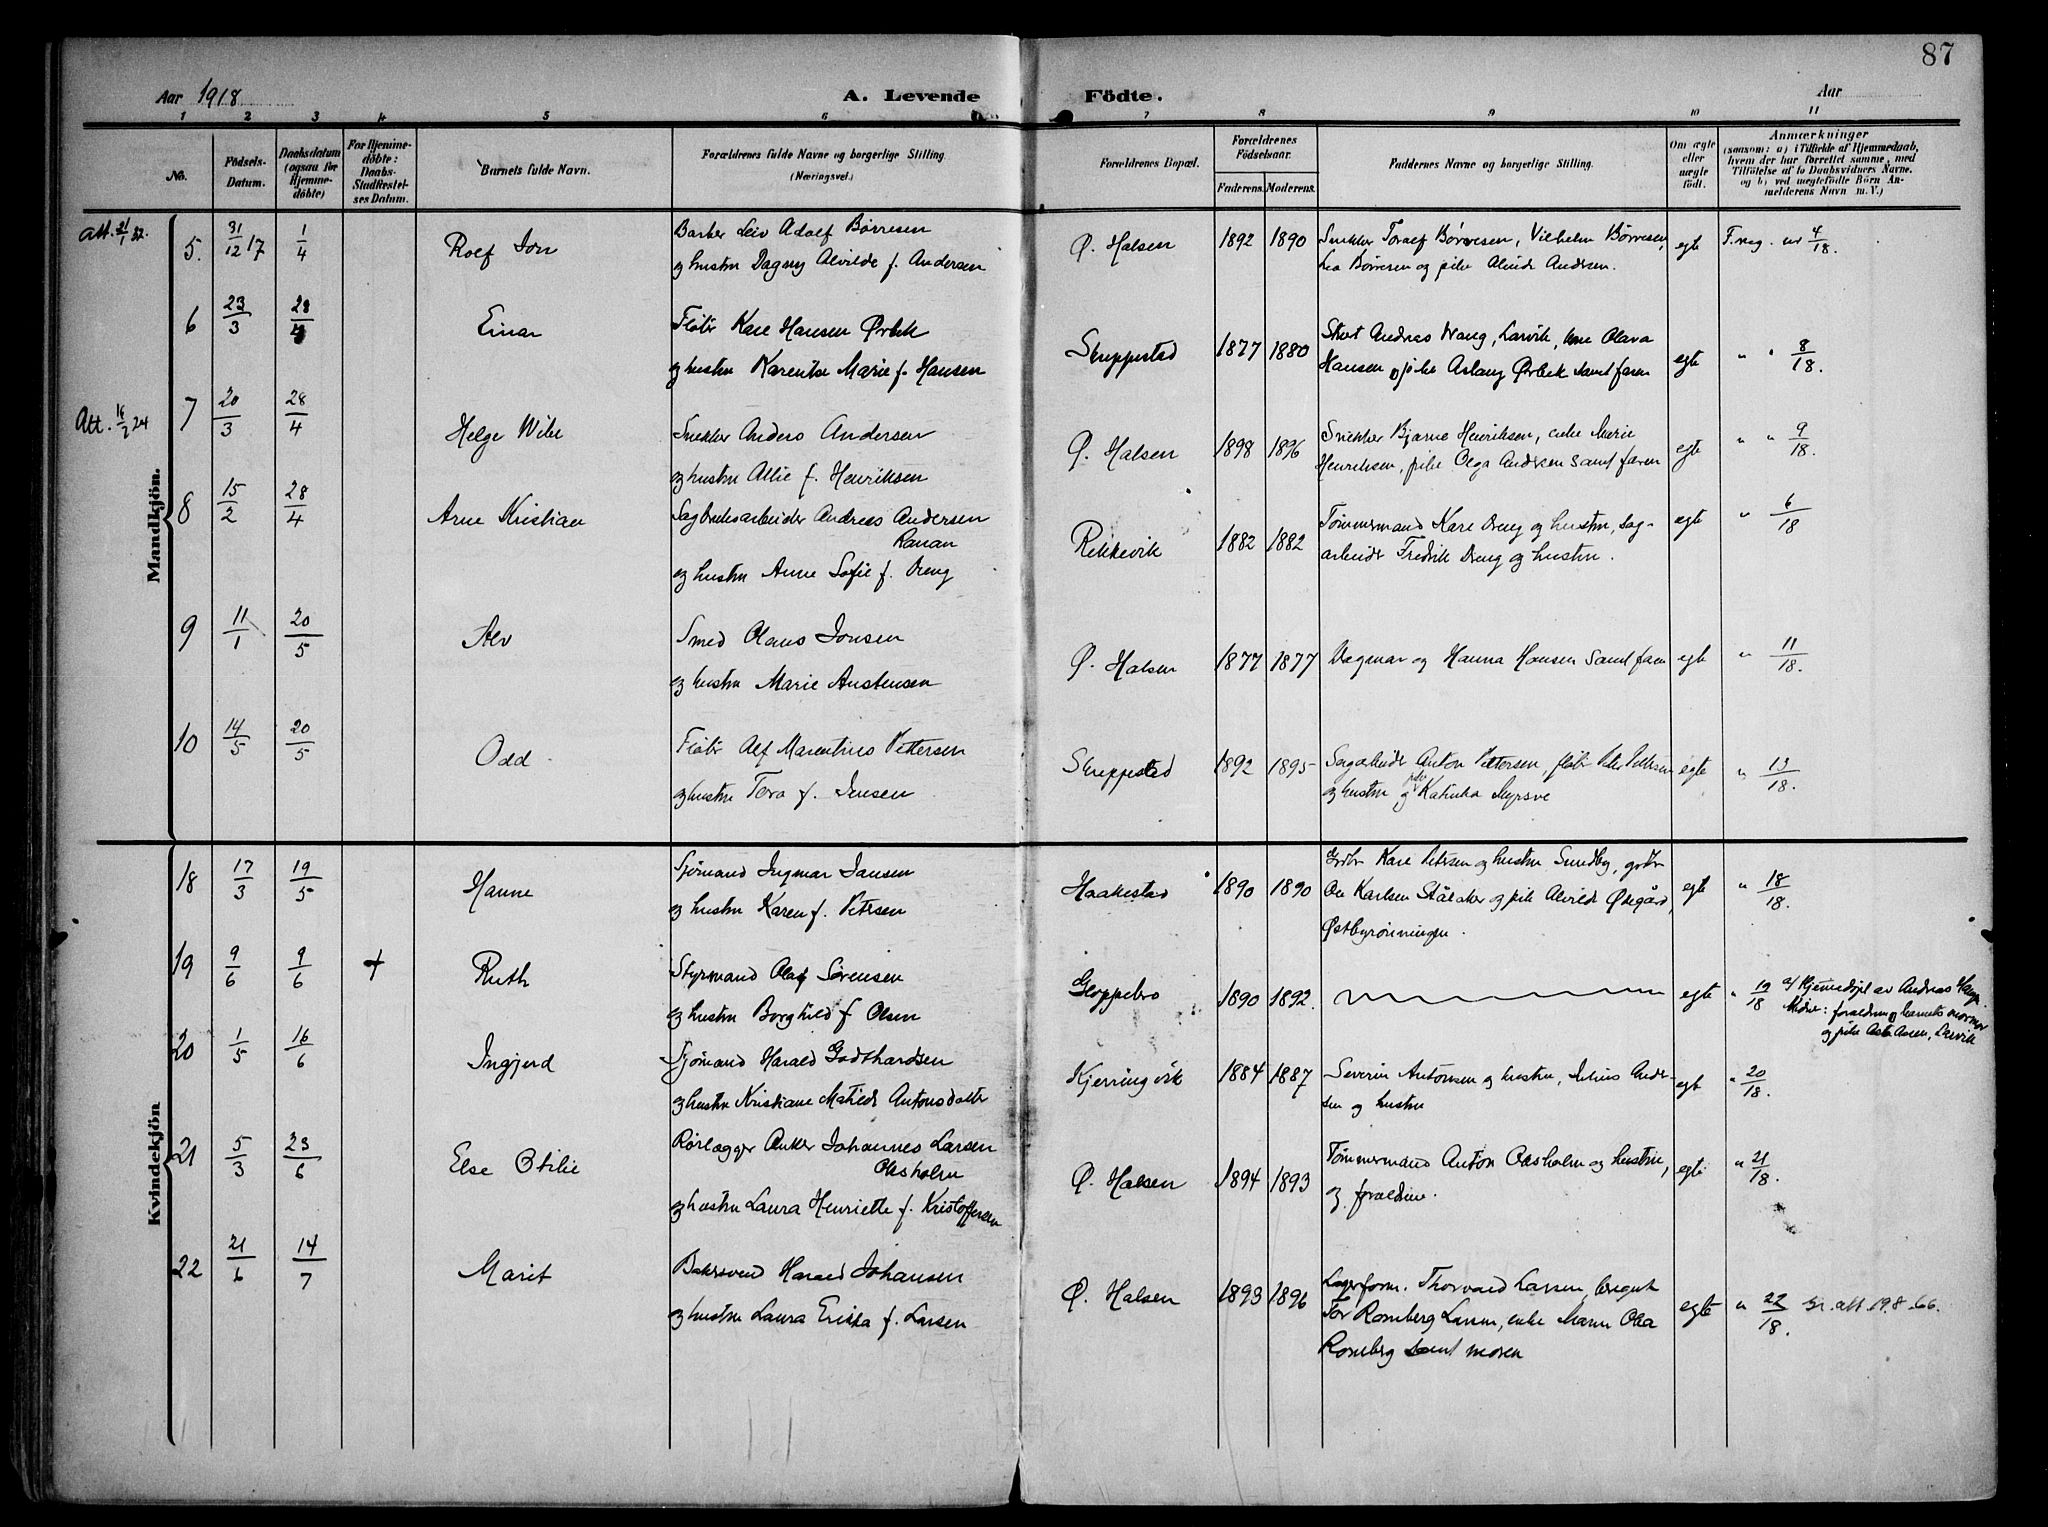 87
Aar 1918
A. Levende Födte.
Aar
1 2 3 4 5 6 7 8 9 10 11
No.
Födsels-Datum.
Daabsdatum (ogsaa for Hjemme-döbte)
For Hjemme-döbte: Daabs-Stadfæstel-ses Datum.
Barnets fulde Navn.
Forældrenes fulde Navne og borgerlige Stilling.
(Næringsvei.)
Forældrenes Bopæl.
Forældrenes Födselsaar.
Faderens. Moderens.
Faddernes Navne og borgerlige Stilling.
Om ægte eller uægte födt.
Anmærkninger
(saasom: a) i Tilfælde af Hjemmedaab,
hvem der har forrettet samme, med
Tilföielse af to Daabsvidners Navne,
og b) ved uægtefödte Börn An-
melderens Navn m. V.)
Mandkjön.
Att. 21/1 32.
5. 31/12 17 1/4 Rolf Jon Barber Leiv Adolf Børresen Ø. Halsen 1892 1890 Snekker Toralf Børresen, Vilhelm Børresen, egte F. reg. nr 4/18.
og hustru Dagny Alvilde f. Andersen Lea Børresen og pike Alvilde Andersen.
6 23/3 28/4 Einar Fløter Karl Hansen Ørbek Skreppestad 1877 1880 Andreas Wang, Larvik, Olava egte " " 8/18.
og hustru Karentse Marie f. Hansen Hansen og pike Aslaug Ørbek samt faren
Att. 16/2 24
7 20/3 28/4 Helge Wilh Snekker Anders Andersen Ø. Halsen 1898 1896 Snekker Bjarne Henriksen, enke Marie egte " " 9/18.
og hustru Allie f. Henriksen Henriksen, pike Olga Andersen samt faren
8 15/2 28/4 Arne Kristian Sagbruksarbeider Andreas Andersen Rekkevik 1882 1882 Tømmermand Karl Dreng og hustru, sag- egte " 6/18
Ranan
og hustru Anne Sofie f. Dreng arbeider Fredrik Dreng og hustru.
9 11/1 20/5 Alv Smed Olaus Jonsen Ø. Halsen 1877 1877 Dagmar og Hanna Hansen samt faren egte " 11/18.
og hustru Marie Austensen
10 14/5 20/5 Odd Fløter Alf Marentius Pettersen Skreppestad 1892 1895 Sagarbeider Anton Pettersen, fløter Peder Pettersen egte " 13/18.
og hustru Tora f. Jensen og hustru og pike Katinka Myrsve
Kvindekjön
18 17/3 19/5 Hanne Sjømand Ingmar Jansen Haakestad 1890 1890 Grdbr Karl Petersen og hustru Sundby, grdbr egte " 18/18.
og hustru Karen f. Petersen Ole Karlsen Stålaker og pike Alvilde Ødegård,
Østbyrønningen.
19 9/6 9/6 + Ruth Styrmand Olaf Sørensen Gloppebro 1890 1892. egte " 19/18 a/ Hjemmedøpt av Andreas
og hustru Borghild f Olsen forældrene og barnets mormor
og pike Larvik
20 1/5 16/6 Ingjerd Sjømand Harald Godthardsen Kjerringvik 1884 1887 Severin Antonsen og hustru, Julius Ander- egte " 20/18.
og hustru Kristiane Matilde Antonsdatter sen og hustru
21 5/3 23/6 Else Otilie Rørlægger Anker Johannes Larsen Ø. Halsen 1894 1893 Tømmermand Anton Oksholm og hustru, egte " 21/18.
Oksholm
og hustru Laura Henriette f. Kristoffersen og forældrene.
22 21/6 14/7 Marit Bakersvend Harald Johansen Ø. Halsen 1893 1896 Lagerform. Thorvald Larsen, egte " 22/18. att. 19.8.66.
og hustru Laura Erikka f. Larsen Tor Romberg Larsen, enke Maren Olea
Romberg samt moren